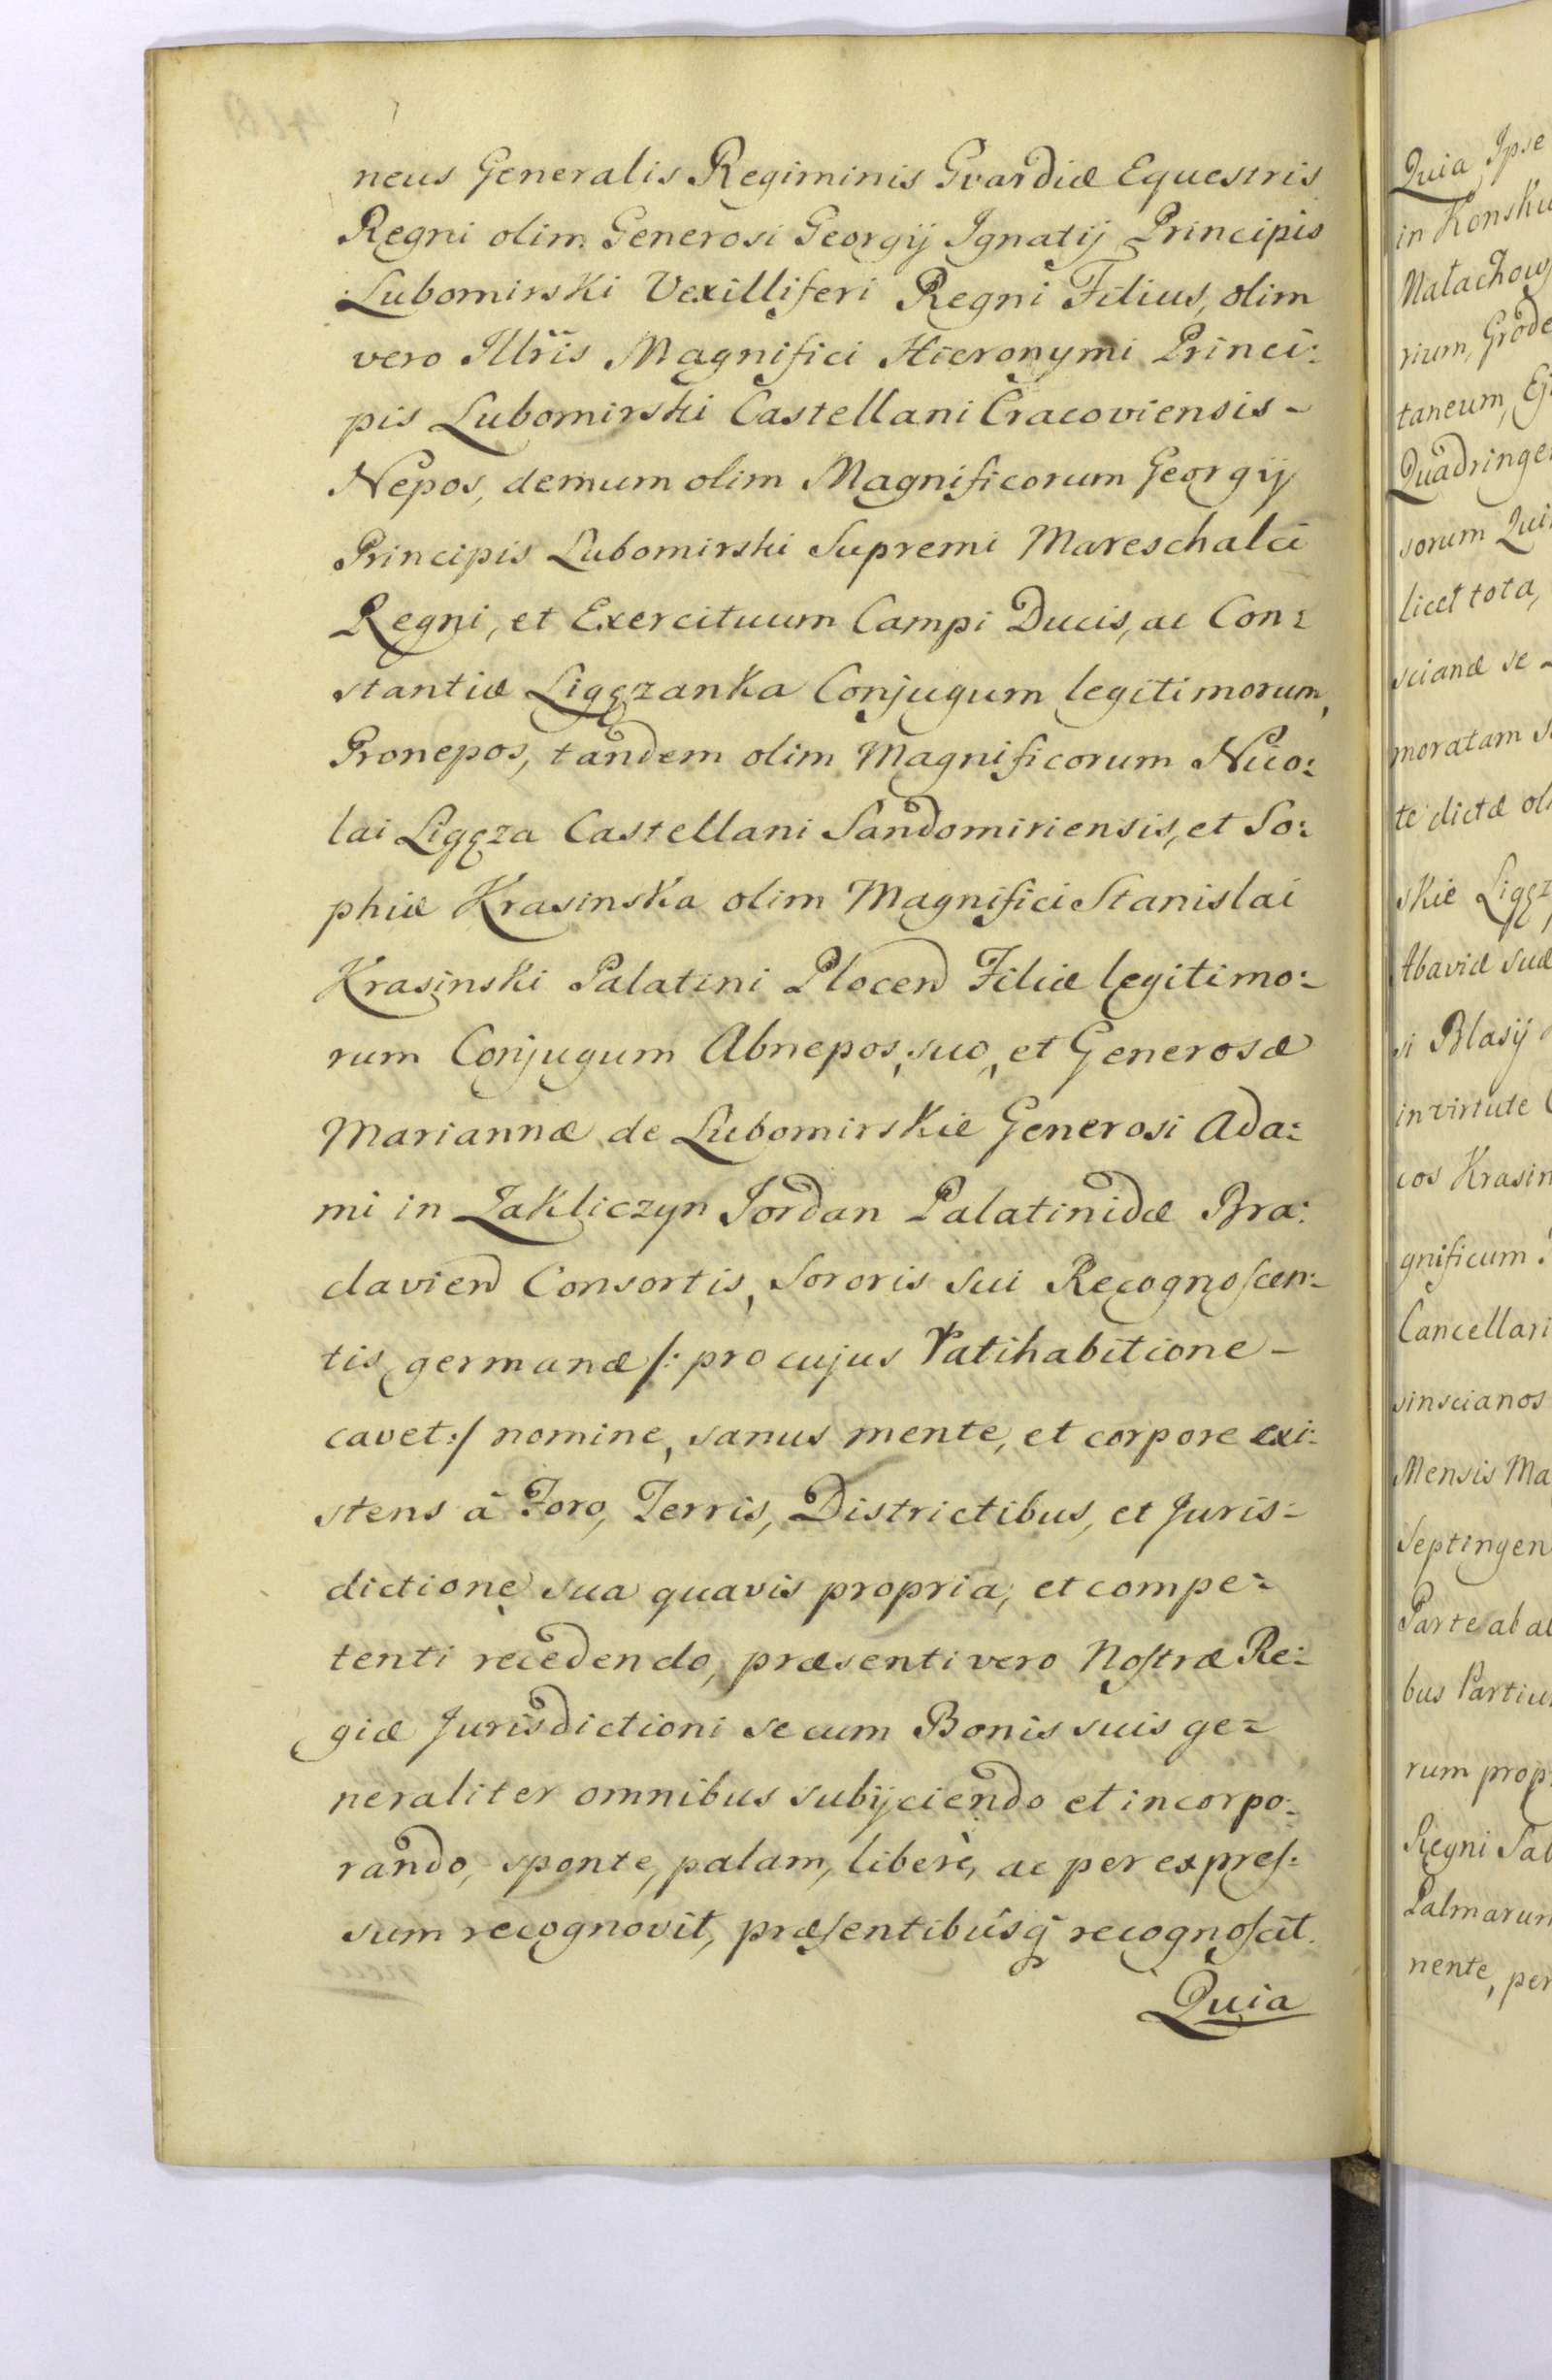 neus Generalis Regiminis Gvardiæ Equestris
Regni olim Generosi Georgij Ignatij Principis
Lubomirski Vexilliferi Regni Filius, olim
vero Illris Magnifici Hieronymi Princi:
pis Lubomirski Castellani Cracoviensis -
Nepos, demum olim Magnificorum Georgij
Principis Lubomirski Supremi Mareschalci
Regni, et Exercituum Campi Ducis, ac Con:
stantiæ Ligęzanka Conjugum legitimorum,
Pronepos, tandem olim Magnificorum Nico:
lai Ligęza Castellani Sandomiriensis, et So:
phiæ Krasinska olim Magnifici Stanislai
Krasinski Palatini Plocen Filiæ legitimo:
rum Conjugum Abnepos, suo, et Generosæ
Mariannæ de Lubomirskie Generosi Ada:
mi in Zakliczyn Jordan Palatinidæ Bra:
clavien Consortis, Sororis Sui Recognoscen:
tis germanæ /: pro cujus Ratihabitione -
cavet :/ nomine, sanus mente, et corpore exi:
stens à Foro, Terris, Districtibus, et Juris:
dictione sua quavis propria, et compe:
tenti recedendo, præsenti vero Nostræ Re:
giæ Jurisdictioni se cum Bonis suis ge:
neraliter omnibus subijciendo et incorpo:
rando, sponte, palam, liberè, ac per expres:
sum recognovit, præsentibusq recognoscit.
Quia
Quia Ipse
in Konsk
Małachow
rium, Grode
taneum, Ej
Quadringe
sorum Qui
licet tota,
scianæ se
moratam
te dictæ ol
skie Ligęz
Abaviæ suæ
si Blasij
in virtute
cos Krasin
gnificum
Cancellari
sinscianos
Mensis Ma
Septingen
Parte ab al
bus Partiu
rum prop
Regni Pal
Palmarum
nente, per